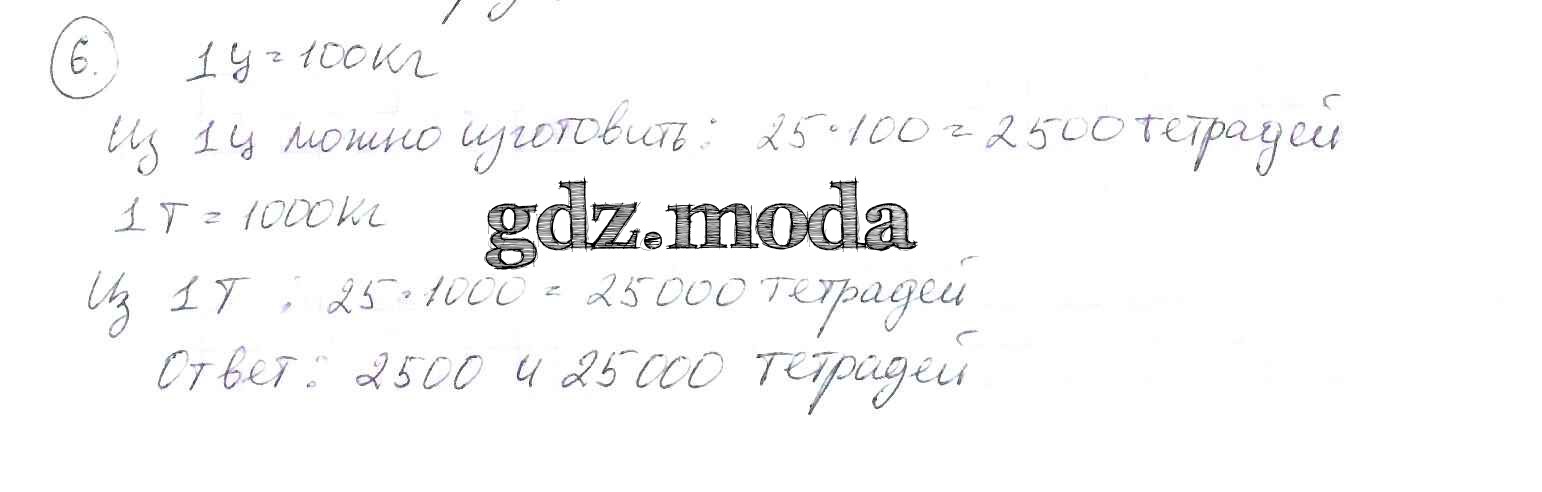 6. 1ц = 100кг
Из 1ц можно изготовить: 25·100 = 2500 тетрадей
1т = 1000кг
gdz.moda
Из 1т : 25·1000 = 25000 тетрадей
Ответ: 2500 и 25000 тетрадей